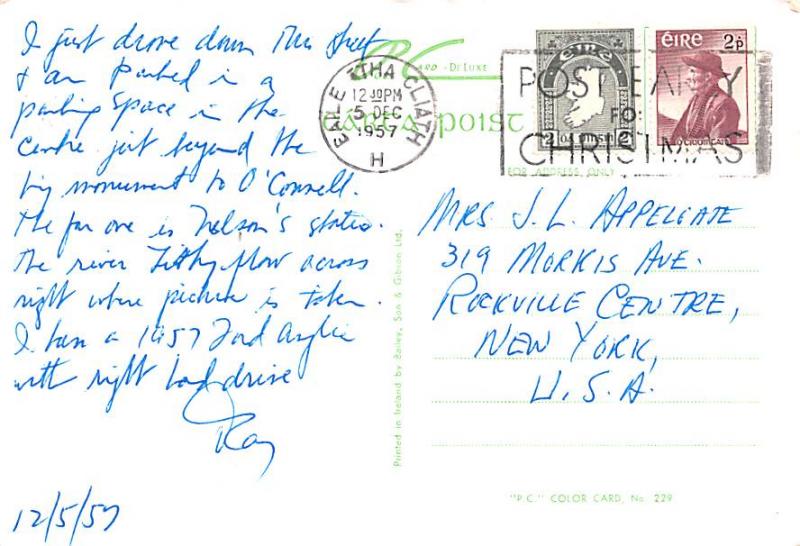 I just drove down this street
& am parked in a
parking space in the
centre just beyond the
big monument to O'Connell.
The far one is Nelson's statue.
The river Liffey flow across
right where picture is taken.
I have a 1957 Ford Anglia
with right hand drive
Ray
12/5/57
CARD - DE LUXE
CÁRTA POIST
BAILE ÁTHA CLIATH
12 30 PM
5 DEC
1957
H
POST EARLY
FOR
CHRISTMAS
éire
2
2
ÉIRE 2p
FOR ADDRESS ONLY
MRS. J. L. APPELGATE
319 MORRIS AVE.
ROCKVILLE CENTRE,
NEW YORK,
U.S.A.
Printed in Ireland by Bailey, Son & Gibson Ltd.
"P.C." COLOR CARD, No. 229